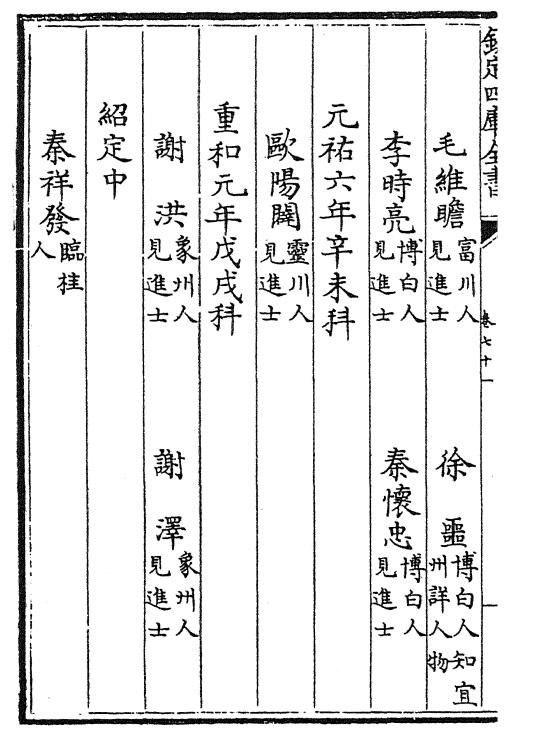 欽定四庫全書
卷七十一
毛維瞻 富川人見進士 徐噩 博白人知宜州詳人物
李時亮 博白人見進士 秦懷忠 博白人見進士
元祐六年辛未科
歐陽闢 靈川人見進士
重和元年戊戌科
謝洪 象州人見進士 謝澤 象州人見進士
紹定中
秦祥發 臨桂人